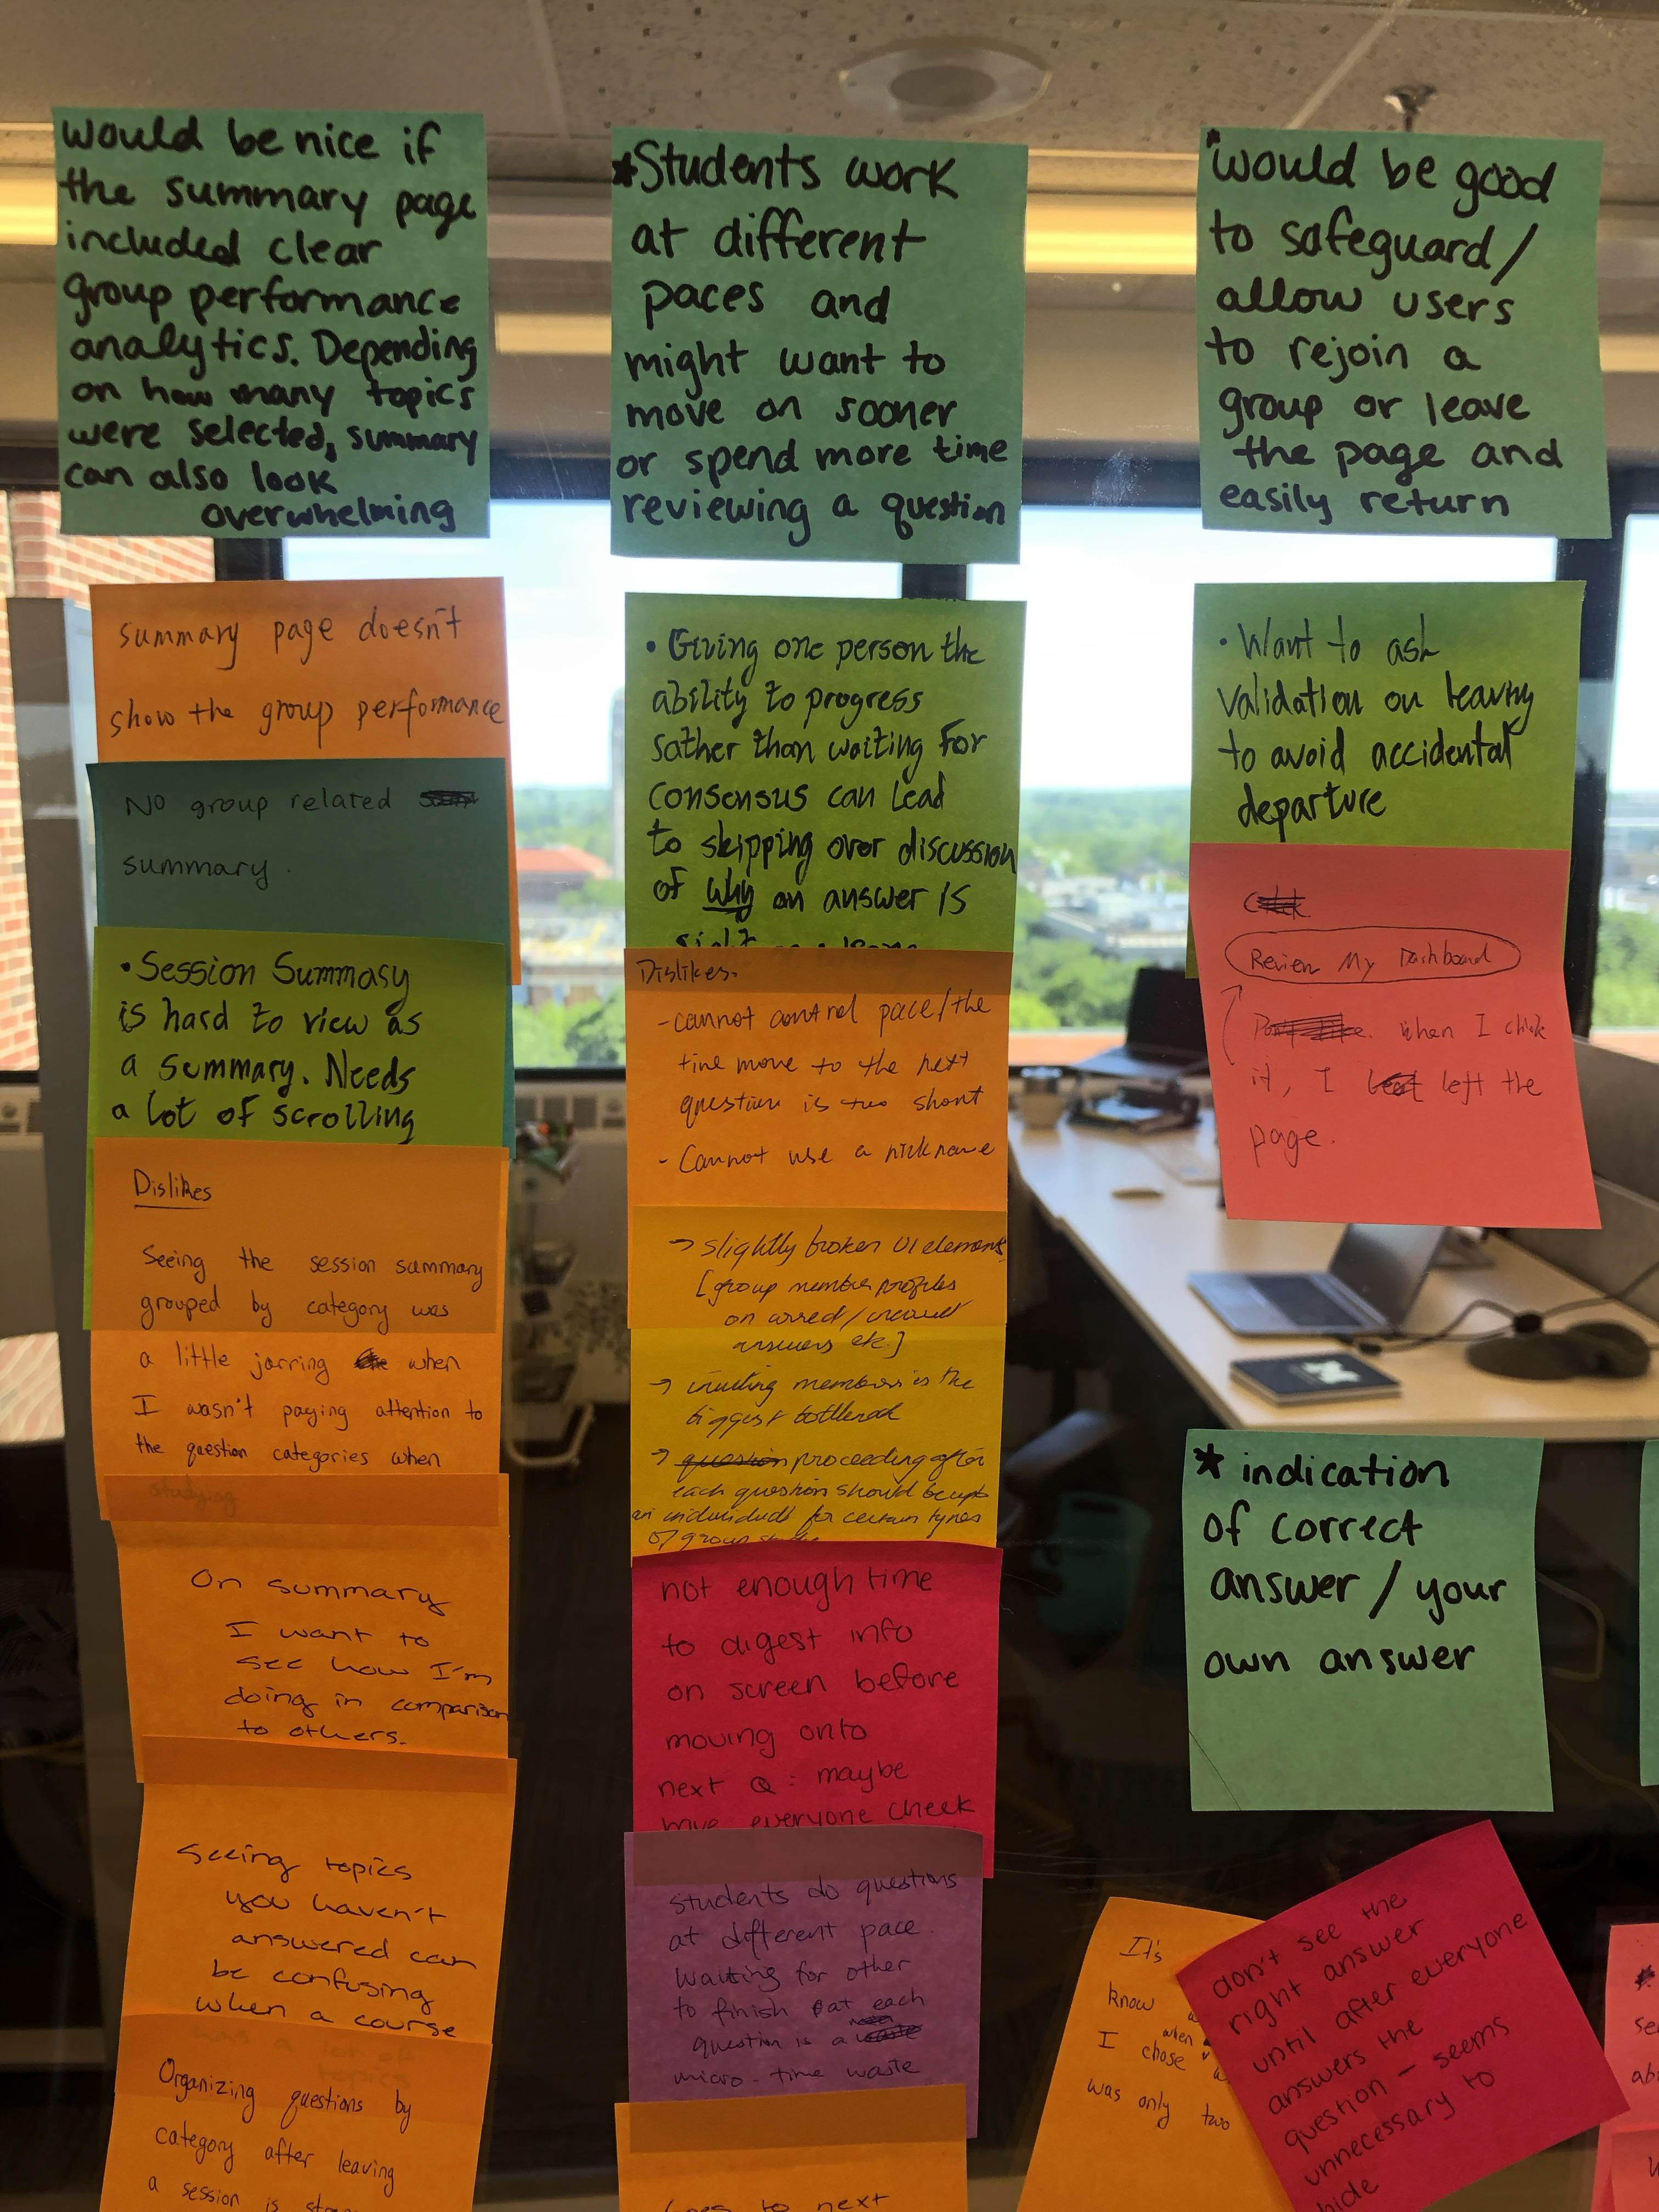 would be nice if
the summary page
included clear
group performance
analytics. Depending
on how many topics
were selected, summary
can also look
overwhelming
summary page doesn't
show the group performance
No group related
summary.
• Session Summary
is hard to view as
a summary. Needs
a lot of scrolling
Dislikes
Seeing the session summary
grouped by category was
a little jarring when
I wasn't paying attention to
the question categories when
studying
On summary
I want to
see how I'm
doing in comparison
to others.
Seeing topics
you haven't
answered can
be confusing
when a course
was a lot of
topics
Organizing questions by
category after leaving
a session is
*Students work
at different
paces and
might want to
move on sooner
or spend more time
reviewing a question
• Giving one person the
ability to progress
rather than waiting for
consensus can lead
to skipping over discussion
of why an answer is
Dislikes:
- cannot control pace/the
time move to the next
question is too short
- Cannot use a nickname
→ slightly broken UI elements
[group member profiles
on
answers etc.]
→ inviting members is the
biggest bottleneck
→ question proceeding after
each question should be upto
an individual for certain types
of group
not enough time
to digest info
on screen before
moving onto
next Q: maybe
have everyone check
students do questions
at different pace.
Waiting for other
to finish at each
question is a
micro-time waste
to next
*would be good
to safeguard/
allow users
to rejoin a
group or leave
the page and
easily return
• Want to ask
validation on leaving
to avoid accidental
departure
Review My Dashboard
when I click
it, I left the
page.
* indication
of correct
answer / your
own answer
It's
know
when
I chose
was only two
don't see the
right answer
until after everyone
answers the
question - seems
unnecessary to
hide